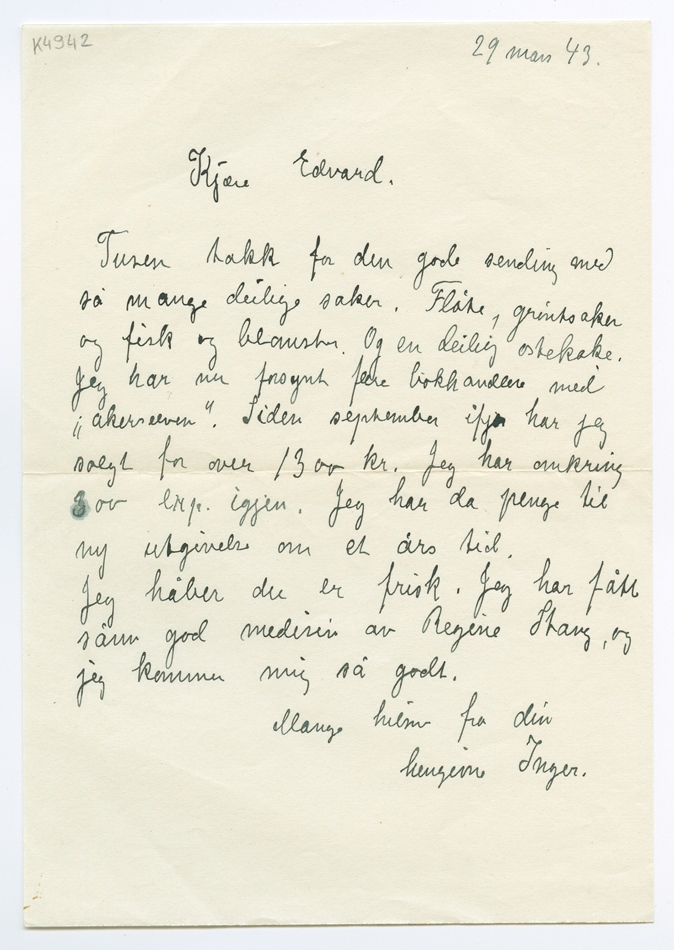 K4942
29 mars 43.
Kjære Edvard.
Tusen takk for den gode sending med
så mange deilige saker. Fløte, grøntsaker
og fisk og blomster. Og en deilig ostekake.
Jeg har nu forsynt flere bokhandlere med
"akerselven". Siden september ifjor har jeg
solgt for over 1300 kr. Jeg har omkring
800 exp. igjen. Jeg har da penge til
ny utgivelse om et års tid.
Jeg håber du er frisk. Jeg har fått
sånn god medisin av Regine Stang, og
jeg kommer mig så godt.
Mange hilsner fra din
hengivne Inger.